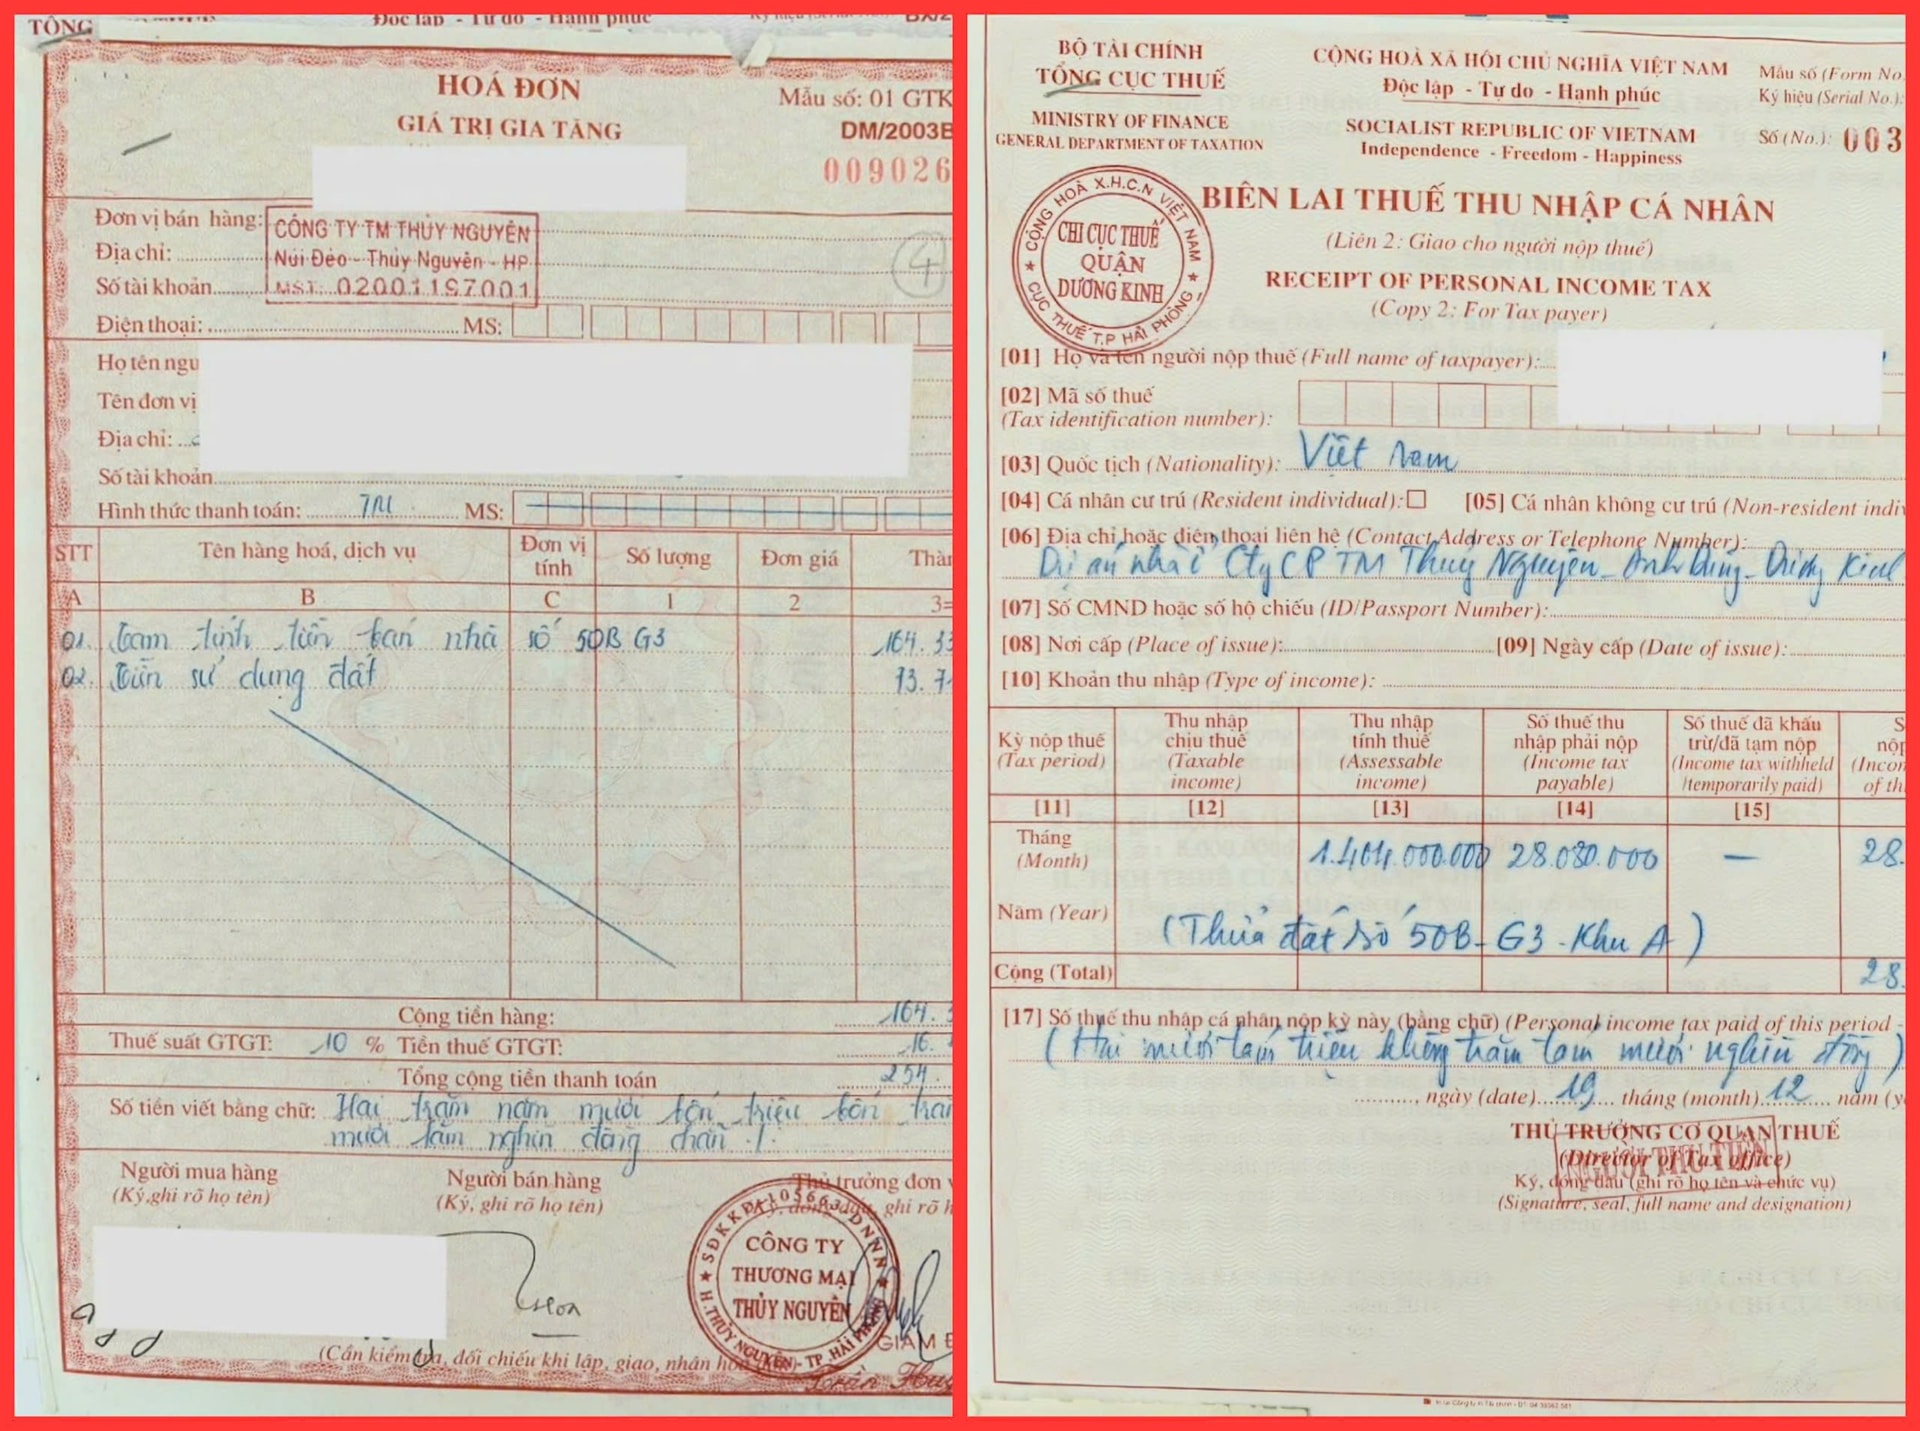 TỔNG
Độc lập - Tự do - Hạnh phúc
HOÁ ĐƠN
GIÁ TRỊ GIA TĂNG
Mẫu số: 01 GTK
DM/2003B
009026
Đơn vị bán hàng:
CÔNG TY TM THỦY NGUYÊN
Địa chỉ:
Núi Đèo - Thủy Nguyên - HP
Số tài khoản
MST: 02001197001
4
Điện thoại: MS:
Họ tên ngư
Tên đơn vị
Địa chỉ:
Số tài khoản
Hình thức thanh toán: TM MS:
STT Tên hàng hoá, dịch vụ Đơn vị tính Số lượng Đơn giá Thàn
A B C 1 2 3=
01. Tạm tính tiền bán nhà số 50B G3 164.33
02. Tiền sử dụng đất 73.7
Cộng tiền hàng: 164.3
Thuế suất GTGT: 10 % Tiền thuế GTGT: 16.
Tổng cộng tiền thanh toán 254.
Số tiền viết bằng chữ: Hai trăm năm mươi bốn triệu bốn trăm
mươi tám nghìn đồng chẵn ./.
Người mua hàng Người bán hàng Thủ trưởng đơn v
(Ký,ghi rõ họ tên) (Ký, ghi rõ họ tên) Ký, đóng dấu, ghi rõ h
SĐKKD: 105663 DNNN
CÔNG TY
THƯƠNG MẠI
THỦY NGUYÊN
H.THỦY NGUYÊN - TP.HẢI PHÒNG
GIÁM Đ
(Cần kiểm tra, đối chiếu khi lập, giao, nhận hoá
Trần
BỘ TÀI CHÍNH
TỔNG CỤC THUẾ
MINISTRY OF FINANCE
GENERAL DEPARTMENT OF TAXATION
CỘNG HOÀ XÃ HỘI CHỦ NGHĨA VIỆT NAM
Độc lập - Tự do - Hạnh phúc
SOCIALIST REPUBLIC OF VIETNAM
Independence - Freedom - Happiness
Mẫu số (Form No.
Ký hiệu (Serial No.):
Số (No.): 003
CỘNG HOÀ X.H.C.N VIỆT NAM
CHI CỤC THUẾ
QUẬN
DƯƠNG KINH
CỤC THUẾ T.P HẢI PHÒNG
BIÊN LAI THUẾ THU NHẬP CÁ NHÂN
(Liên 2: Giao cho người nộp thuế)
RECEIPT OF PERSONAL INCOME TAX
(Copy 2: For Tax payer)
[01] Họ và tên người nộp thuế (Full name of taxpayer):
[02] Mã số thuế
(Tax identification number):
[03] Quốc tịch (Nationality): Việt Nam
[04] Cá nhân cư trú (Resident individual): [05] Cá nhân không cư trú (Non-resident indiv
[06] Địa chỉ hoặc điện thoại liên hệ (Contact Address or Telephone Number):
Dự án nhà ở Cty CP TM Thuỷ Nguyên - Anh Dũng - Dương Kinh
[07] Số CMND hoặc số hộ chiếu (ID/Passport Number):
[08] Nơi cấp (Place of issue): [09] Ngày cấp (Date of issue):
[10] Khoản thu nhập (Type of income):
Kỳ nộp thuế (Tax period) Thu nhập chịu thuế (Taxable income) Thu nhập tính thuế (Assessable income) Số thuế thu nhập phải nộp (Income tax payable) Số thuế đã khấu trừ/đã tạm nộp (Income tax withheld /temporarily paid) S nộp (Incon of th
[11] [12] [13] [14] [15]
Tháng (Month) 1.404.000.000 28.080.000 — 28.
Năm (Year) (Thửa đất số 50B - G3 - Khu A)
Cộng (Total) 28.
[17] Số thuế thu nhập cá nhân nộp kỳ này (bằng chữ) (Personal income tax paid of this period -
(Hai mươi tám triệu không trăm tám mươi nghìn đồng)
, ngày (date) 19 tháng (month) 12 năm (y
THỦ TRƯỞNG CƠ QUAN THUẾ
(Director of Tax office)
NGƯỜI THU TIỀN
Ký, đóng dấu (ghi rõ họ tên và chức vụ)
(Signature, seal, full name and designation)